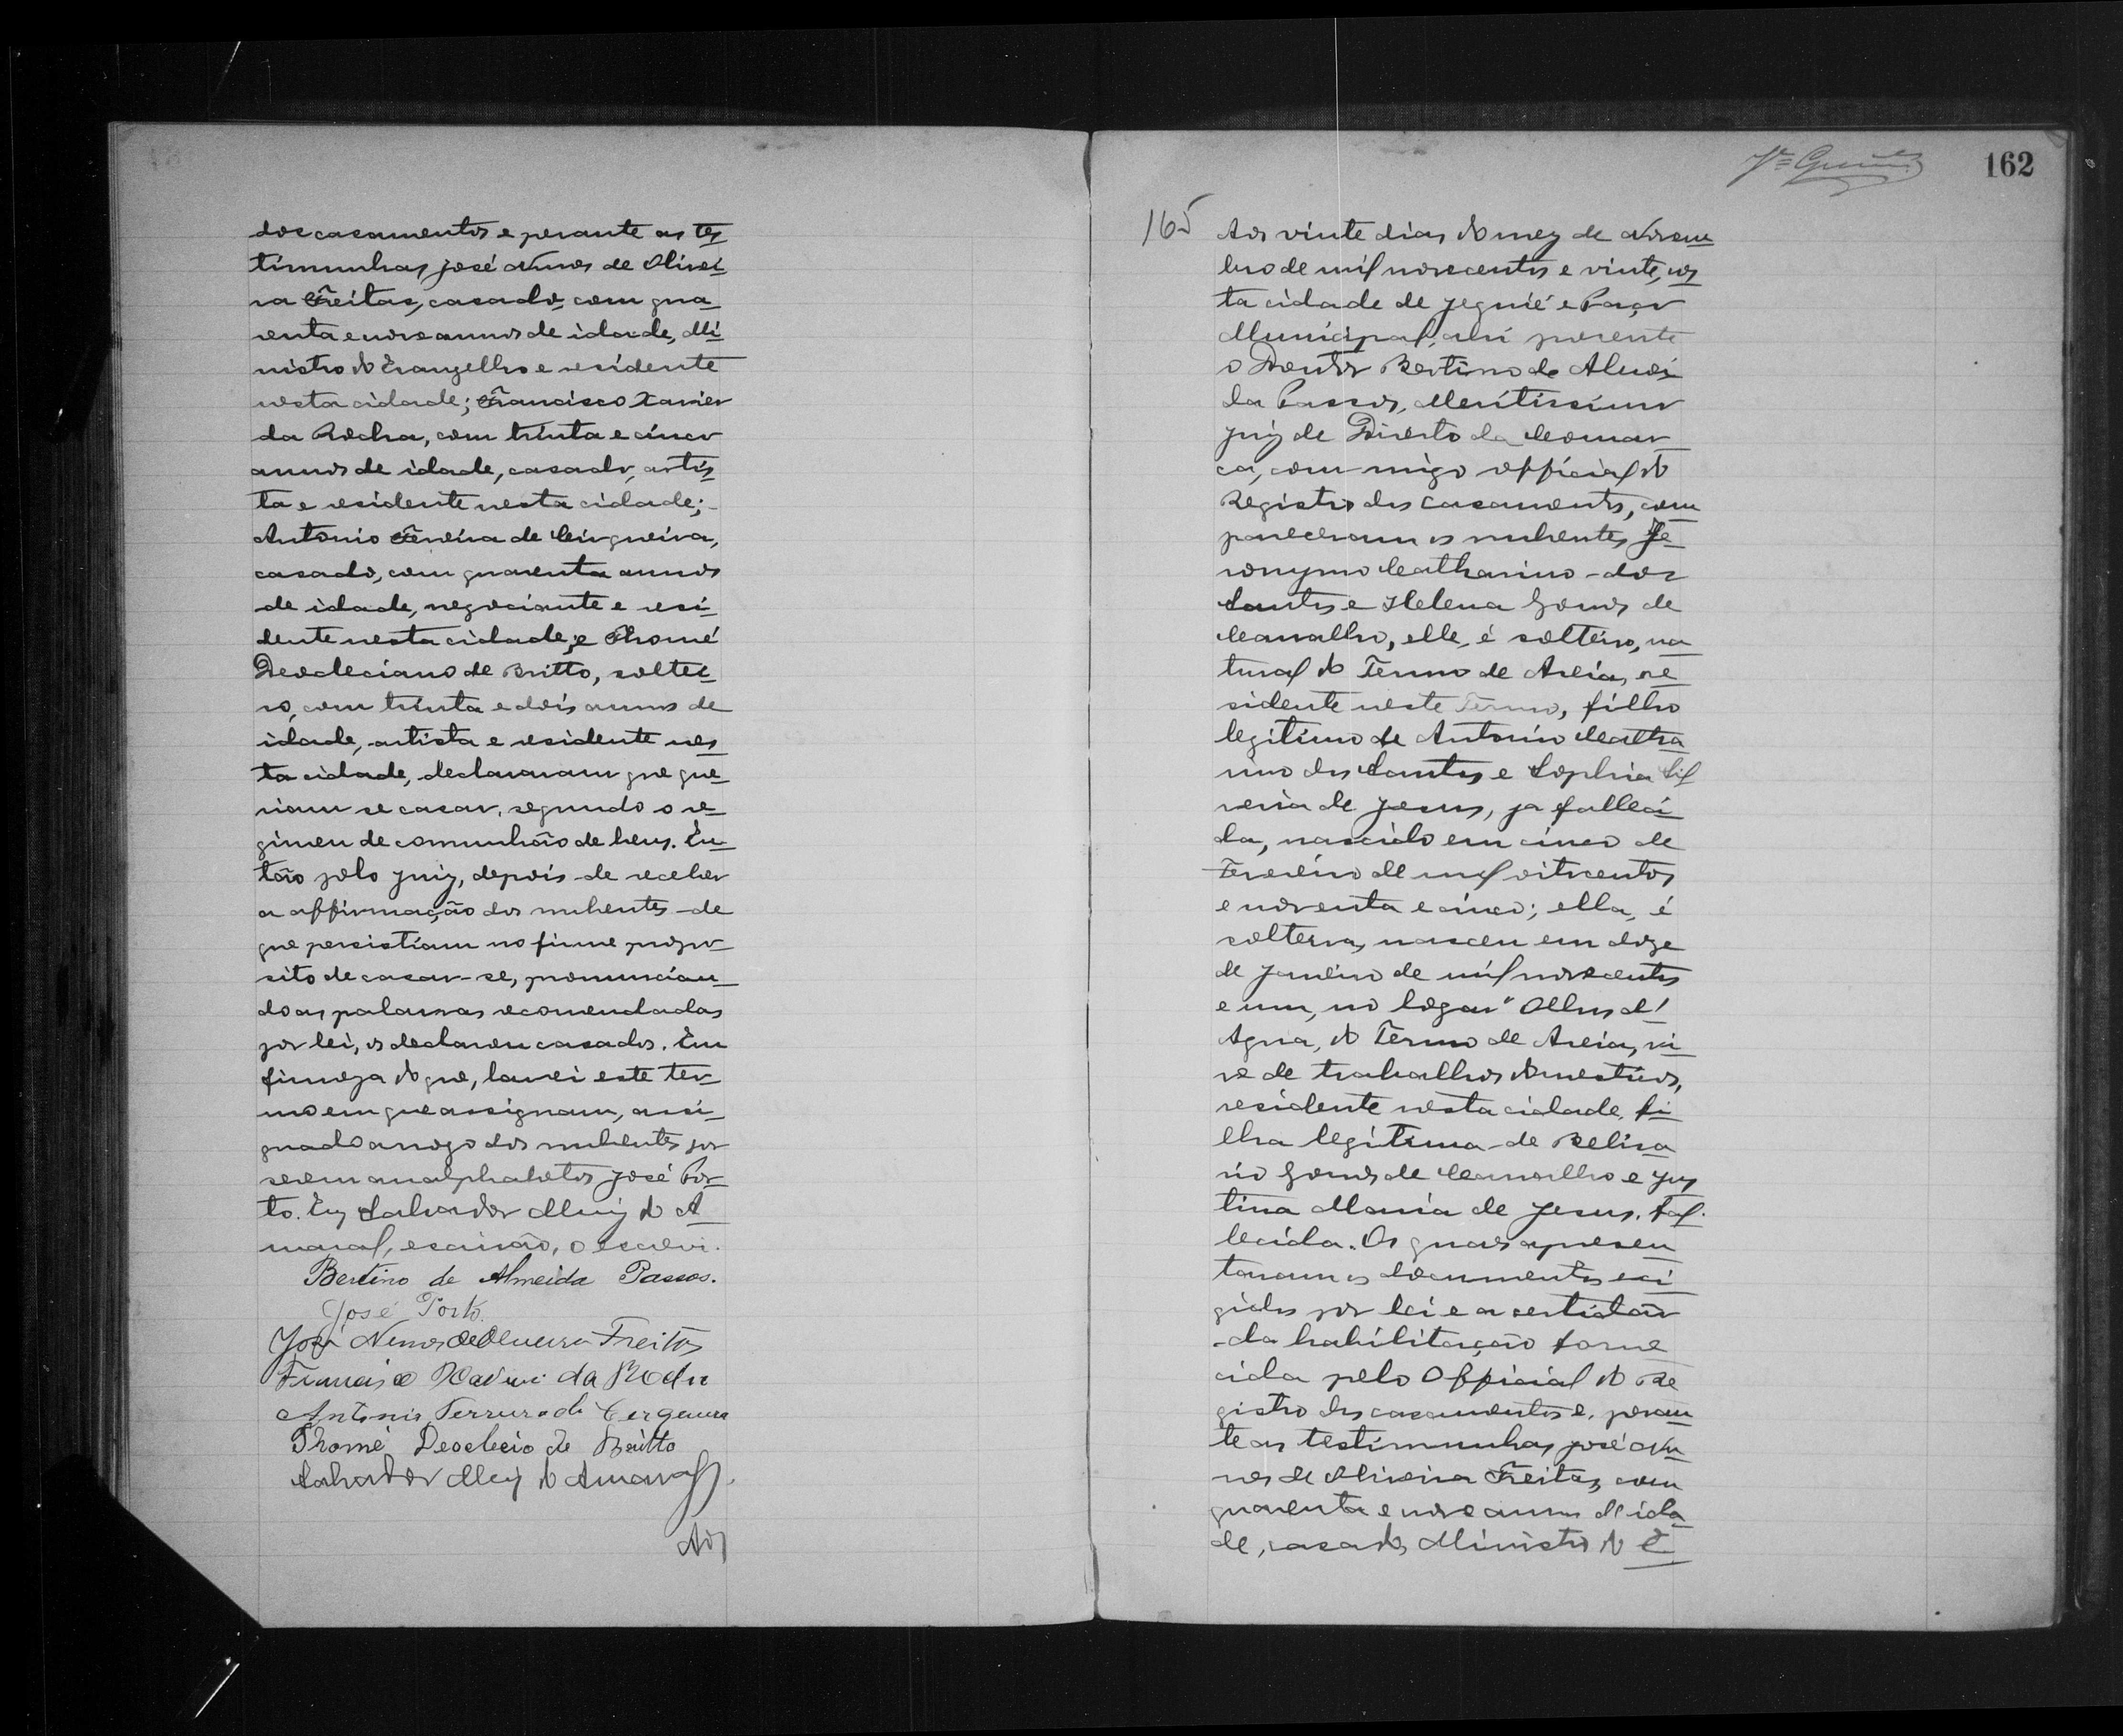 dos casamentos e perante as tes
timunhas José Nunes de Olivei
ra Freitas, casado, com qua
renta e nove annos de idade, Mi
nistro do Evangelho e residente
nesta cidade; Francisco Xavier
da Rocha, com trinta e cinco
annos de idade, casado, artis
ta e residente nesta cidade;
Antonio Ferreira de Cerqueira,
casado, com quarenta annos
de idade, negociante e resi
dente nesta cidade, e Thomé
Deocleciano de Britto, soltei
ro, com trinta e dois annos de
idade, artista e residente nes
ta cidade, declararam que que
riam se casar, segundo o re
gimen de comunhão de bens. En
tão pelo juiz, depois de receber
a affirmação dos nubentes de
que persistiam no firme propo
sito de casar-se, pronuncian
do as palavras recomendadas
por lei, os declarou casados. Em
firmeza do que, lavrei este ter
mo em que assignam, assi
gnado a rogo dos nubentes por
serem analphabetos José Por
to. Eu Salvador Muiz do A
maral, escrivão, o escrevi.
Bertino de Almeida Passos.
José Porto.
José Nunes de Oliveira Freitas
Francisco Xavier da Rocha
Antonio Ferreira de Cerqueira
Thomé Deoclecio de Britto
Salvador Muiz do Amaral
Aos
162
165
Aos vinte dias do mez de Novem
bro de mil novecentos e vinte, nes
ta cidade de Jequié e Paço
Municipal, ahi presente
o Doutor Bertino de Almei
da Passos, Meritissimo
Juiz de Direito da Comar
ca, com migo official do
Registro dos casamentos, com
pareceram os nubentes Je
ronymo Catharino dos
Santos e Helena Gomes de
Carvalho, elle, é solteiro, na
tural do Termo de Areia, re
sidente neste Termo, filho
legitimo de Antonio Catha
rino dos Santos e Sophia Sil
veria de Jesus, ja falleci
da, nascido em cinco de
Fevereiro de mil oitocentos
e noventa e cinco; ella, é
solteira, nasceu em doze
de Janeiro de mil novecentos
e um, no logar "Olhos d'
Agua, do Termo de Areia, vi
ve de trabalhos domesticos,
residente nesta cidade, fi
lha legitima de Belisa
rio Gomes de Carvalho e Jus
tina Maria de Jesus, fal
lecida. Os quaes apresen
taram os documentos exi
gidos por lei e a certidão
da habilitação forne
cida pelo Official do Re
gistro dos casamentos e, peran
te as testimunhas José Nu
nes de Oliveira Freitas, com
quarenta e nove annos de ida
de, casado, Ministro do E